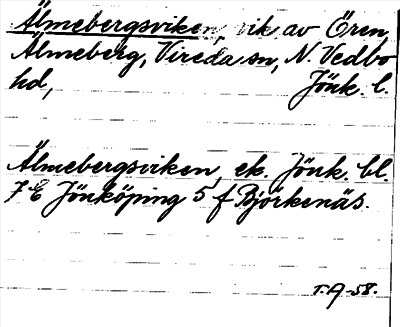 Älmebergsviken, vik av Ören,
Älmeberg, Vireda sn, N. Vedbo
hd, Jönk. l.
Älmebergsviken, ek. Jönk. bl.
7 E Jönköping 5 f Björkenäs.
T.A -58.